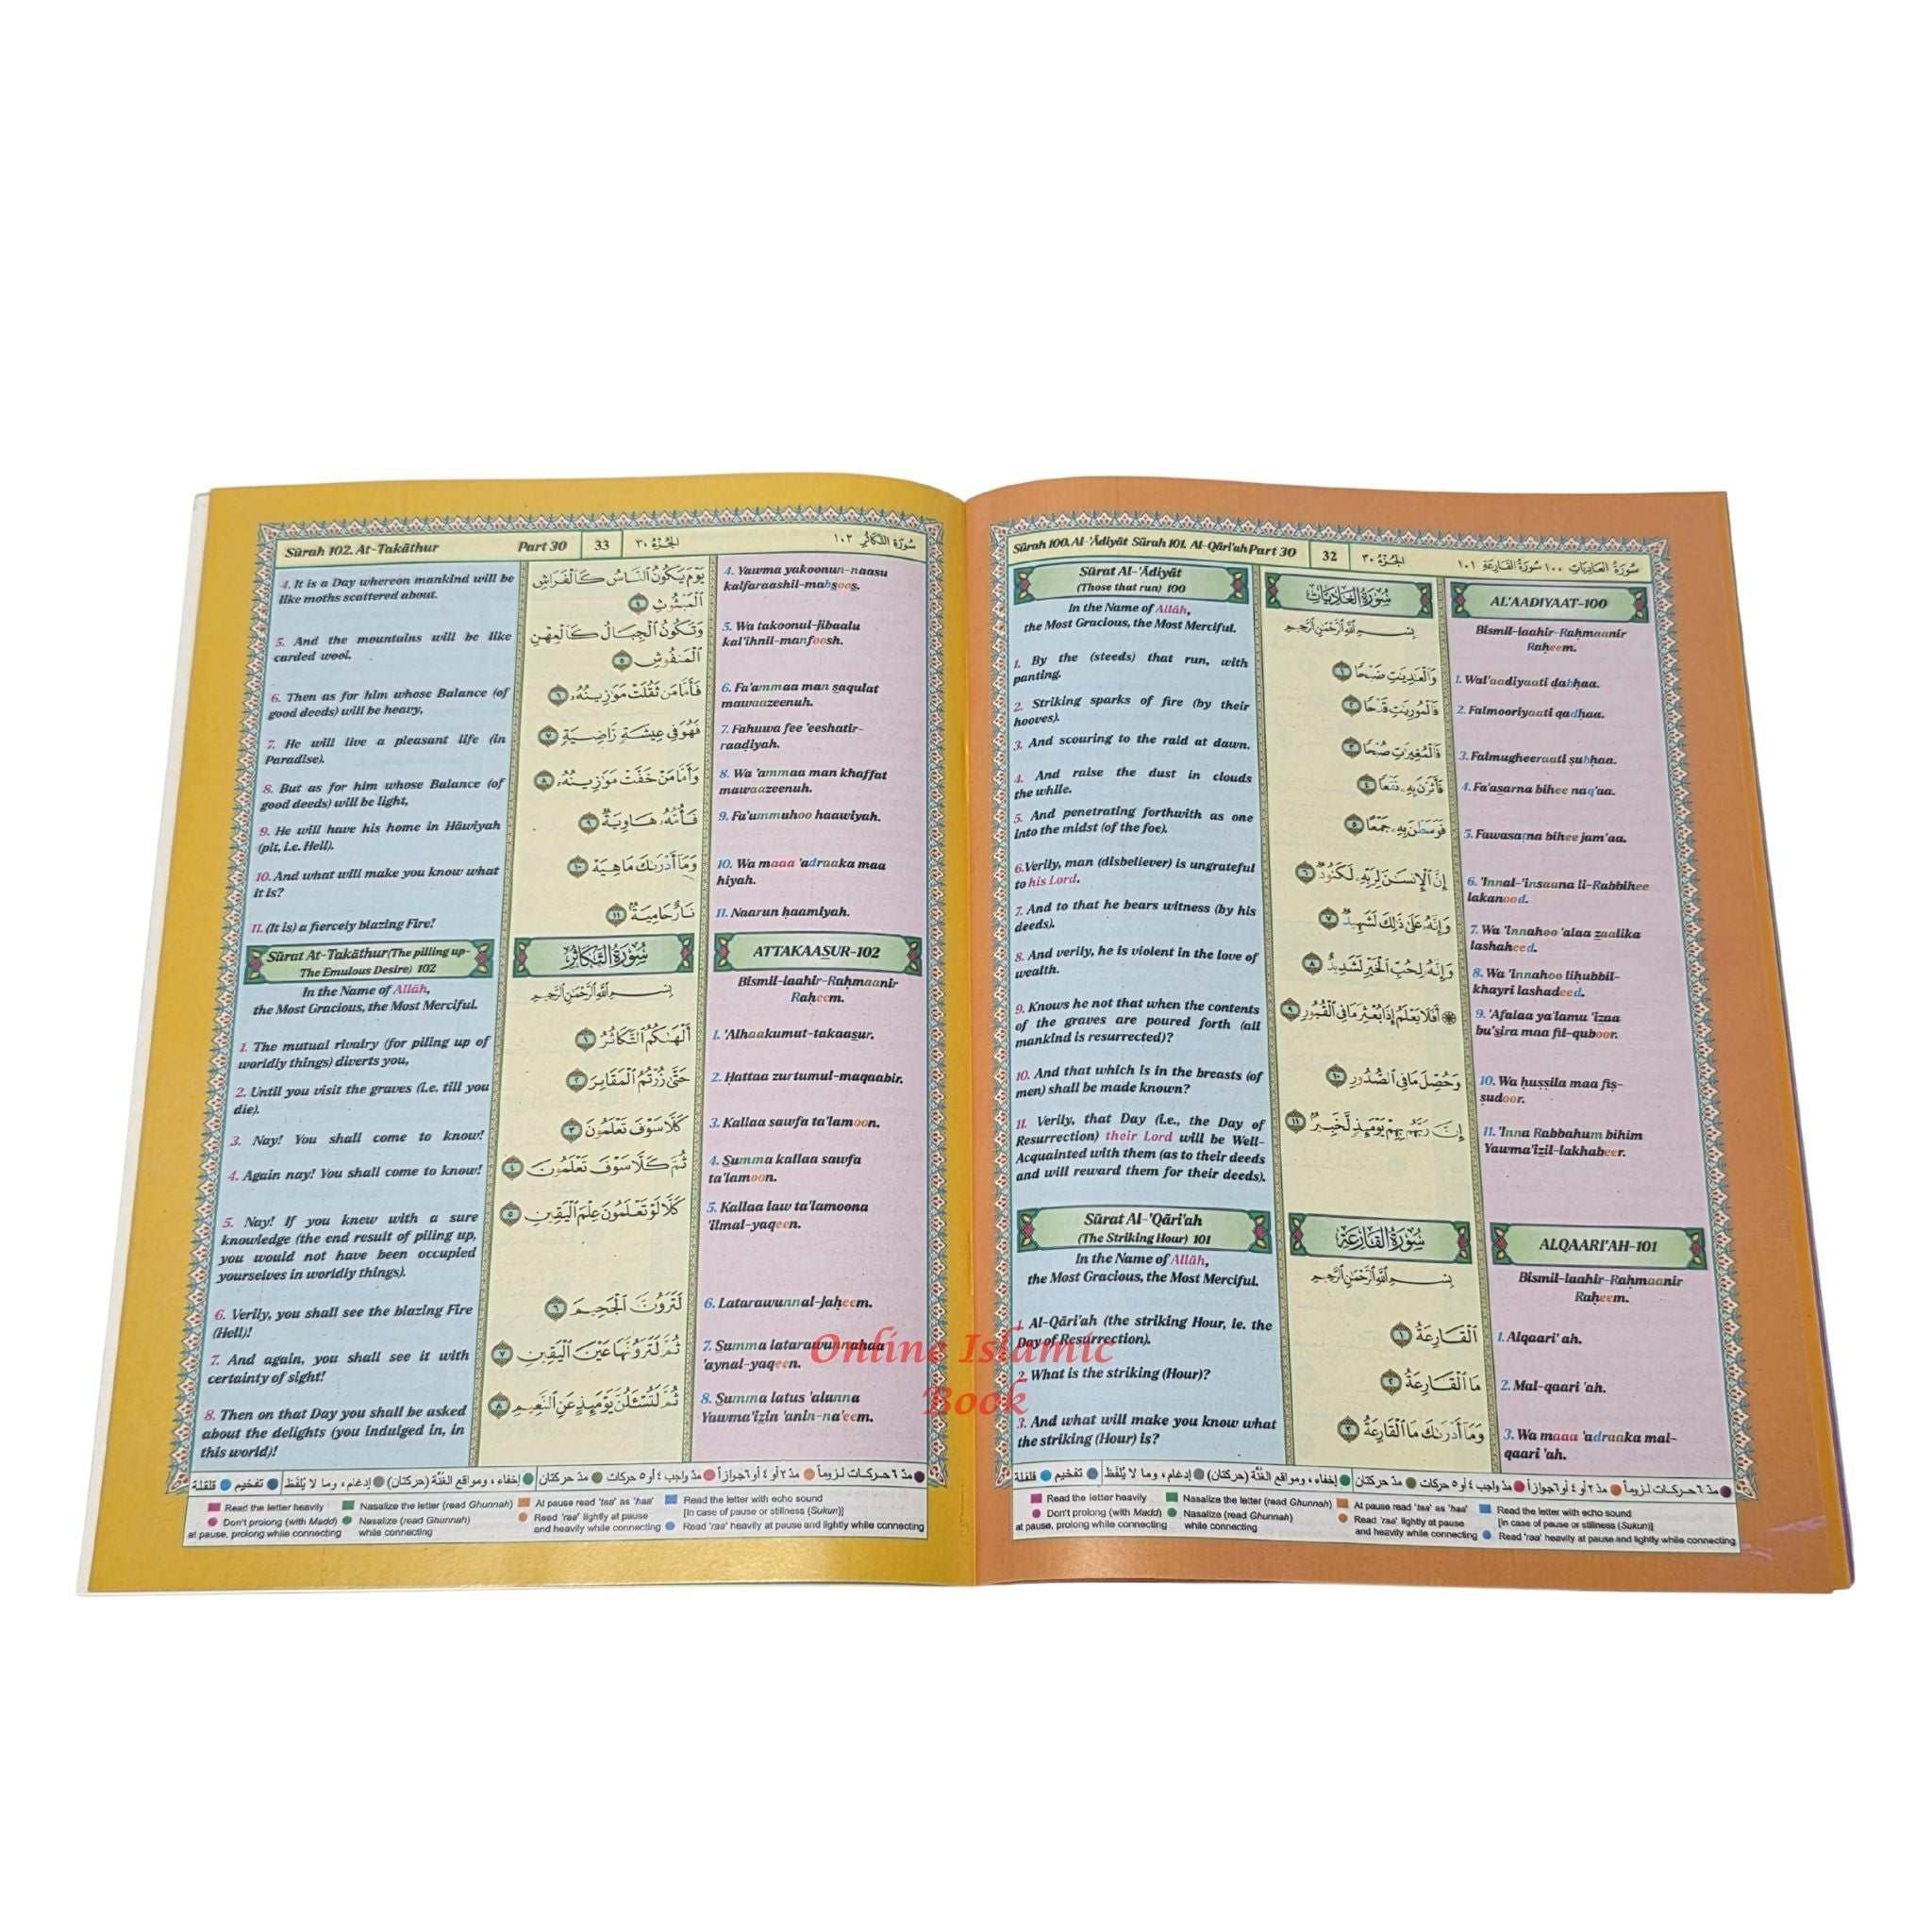 Sūrah 102. At-Takāthur
Part 30
33
الجزء ٣٠
سورة التكاثر ١٠٢
4. It is a Day whereon mankind will be
like moths scattered about.
5. And the mountains will be like
carded wool.
6. Then as for him whose Balance (of
good deeds) will be heavy,
7. He will live a pleasant life (in
Paradise).
8. But as for him whose Balance (of
good deeds) will be light,
9. He will have his home in Hāwiyah
(pit, i.e. Hell).
10. And what will make you know what
it is?
11. (It is) a fiercely blazing Fire!
Sūrat At-Takāthur (The pilling up-
The Emulous Desire) 102
In the Name of Allāh,
the Most Gracious, the Most Merciful.
1. The mutual rivalry (for piling up of
worldly things) diverts you,
2. Until you visit the graves (i.e. till you
die).
3. Nay! You shall come to know!
4. Again nay! You shall come to know!
5. Nay! If you knew with a sure
knowledge (the end result of piling up,
you would not have been occupied
yourselves in worldly things).
6. Verily, you shall see the blazing Fire
(Hell)!
7. And again, you shall see it with
certainty of sight!
8. Then on that Day you shall be asked
about the delights (you indulged in, in
this world)!
يَوْمَ يَكُونُ ٱلنَّاسُ كَٱلْفَرَاشِ
ٱلْمَبْثُوثِ ٤
وَتَكُونُ ٱلْجِبَالُ كَٱلْعِهْنِ
ٱلْمَنفُوشِ ٥
فَأَمَّا مَن ثَقُلَتْ مَوَٰزِينُهُۥ ٦
فَهُوَ فِى عِيشَةٍ رَّاضِيَةٍ ٧
وَأَمَّا مَنْ خَفَّتْ مَوَٰزِينُهُۥ ٨
فَأُمُّهُۥ هَاوِيَةٌ ٩
وَمَآ أَدْرَىٰكَ مَا هِيَهْ ١٠
نَارٌ حَامِيَةٌۢ ١١
سُورَةُ التَّكَاثُرِ
بِسْمِ ٱللَّهِ ٱلرَّحْمَٰنِ ٱلرَّحِيمِ
أَلْهَىٰكُمُ ٱلتَّكَاثُرُ ١
حَتَّىٰ زُرْتُمُ ٱلْمَقَابِرَ ٢
كَلَّا سَوْفَ تَعْلَمُونَ ٣
ثُمَّ كَلَّا سَوْفَ تَعْلَمُونَ ٤
كَلَّا لَوْ تَعْلَمُونَ عِلْمَ ٱلْيَقِينِ ٥
لَتَرَوُنَّ ٱلْجَحِيمَ ٦
ثُمَّ لَتَرَوُنَّهَا عَيْنَ ٱلْيَقِينِ ٧
ثُمَّ لَتُسْـَٔلُنَّ يَوْمَئِذٍ عَنِ ٱلنَّعِيمِ ٨
4. Yawma yakoonun-naasu
kalfaraashil-mabsoos.
5. Wa takoonul-jibaalu
kal'ihnil-manfoosh.
6. Fa'ammaa man saqulat
mawaazeenuh.
7. Fahuwa fee 'eeshatir-
raaḍiyah.
8. Wa 'ammaa man khaffat
mawaazeenuh.
9. Fa'ummuhoo haawiyah.
10. Wa maaa 'adraaka maa
hiyah.
11. Naarun ḥaamiyah.
ATTAKAASUR-102
Bismil-laahir-Raḥmaanir
Raḥeem.
1. 'Alhaakumut-takaasur.
2. Ḥattaa zurtumul-maqaabir.
3. Kallaa sawfa ta'lamoon.
4. Summa kallaa sawfa
ta'lamoon.
5. Kallaa law ta'lamoona
'ilmal-yaqeen.
6. Latarawunnal-jaḥeem.
7. Summa latarawunnahaa
'aynal-yaqeen.
8. Summa latus 'alunna
Yawma'izin 'anin-na'eem.
مدّ ٦ حركات لزوماً مدّ ٢ أو ٤ أو ٦ جوازاً مدّ واجب ٤ أو ٥ حركات مدّ حركتان إخفاء، ومواقع الغنّة (حركتان) إدغام، وما لا يُلفَظ تفخيم قلقلة
Read the letter heavily
Nasalize the letter (read Ghunnah)
At pause read 'taa' as 'haa'
Read the letter with echo sound
[In case of pause or stillness (Sukun)]
Don't prolong (with Madd)
at pause, prolong while connecting
Nasalize (read Ghunnah)
while connecting
Read 'raa' lightly at pause
and heavily while connecting
Read 'raa' heavily at pause and lightly while connecting
Sūrah 100. Al-'Ādiyāt Sūrah 101. Al-Qāri'ah Part 30
32
الجزء ٣٠
سورة العاديات ١٠٠ سورة القارعة ١٠١
Sūrat Al-'Ādiyāt
(Those that run) 100
In the Name of Allāh,
the Most Gracious, the Most Merciful.
1. By the (steeds) that run, with
panting.
2. Striking sparks of fire (by their
hooves).
3. And scouring to the raid at dawn.
4. And raise the dust in clouds
the while.
5. And penetrating forthwith as one
into the midst (of the foe).
6. Verily, man (disbeliever) is ungrateful
to his Lord.
7. And to that he bears witness (by his
deeds).
8. And verily, he is violent in the love of
wealth.
9. Knows he not that when the contents
of the graves are poured forth (all
mankind is resurrected)?
10. And that which is in the breasts (of
men) shall be made known?
11. Verily, that Day (i.e., the Day of
Resurrection) their Lord will be Well-
Acquainted with them (as to their deeds
and will reward them for their deeds).
Sūrat Al-'Qāri'ah
(The Striking Hour) 101
In the Name of Allāh,
the Most Gracious, the Most Merciful.
1 Al-Qāri'ah (the striking Hour, ie. the
Day of Resurrection).
2. What is the striking (Hour)?
3. And what will make you know what
the striking (Hour) is?
سُورَةُ العَادِيَاتِ
بِسْمِ ٱللَّهِ ٱلرَّحْمَٰنِ ٱلرَّحِيمِ
وَٱلْعَٰدِيَٰتِ ضَبْحًا ١
فَٱلْمُورِيَٰتِ قَدْحًا ٢
فَٱلْمُغِيرَٰتِ صُبْحًا ٣
فَأَثَرْنَ بِهِۦ نَقْعًا ٤
فَوَسَطْنَ بِهِۦ جَمْعًا ٥
إِنَّ ٱلْإِنسَٰنَ لِرَبِّهِۦ لَكَنُودٌ ٦
وَإِنَّهُۥ عَلَىٰ ذَٰلِكَ لَشَهِيدٌ ٧
وَإِنَّهُۥ لِحُبِّ ٱلْخَيْرِ لَشَدِيدٌ ٨
۞ أَفَلَا يَعْلَمُ إِذَا بُعْثِرَ مَا فِى ٱلْقُبُورِ ٩
وَحُصِّلَ مَا فِى ٱلصُّدُورِ ١٠
إِنَّ رَبَّهُم بِهِمْ يَوْمَئِذٍ لَّخَبِيرٌۢ ١١
سُورَةُ القَارِعَةِ
بِسْمِ ٱللَّهِ ٱلرَّحْمَٰنِ ٱلرَّحِيمِ
ٱلْقَارِعَةُ ١
مَا ٱلْقَارِعَةُ ٢
وَمَآ أَدْرَىٰكَ مَا ٱلْقَارِعَةُ ٣
AL'AADIYAAT-100
Bismil-laahir-Raḥmaanir
Raḥeem.
1. Wal'aadiyaati ḍabḥaa.
2. Falmooriyaati qadḥaa.
3. Falmugheeraati ṣubḥaa.
4. Fa'asarna bihee naq'aa.
5. Fawasaṭna bihee jam'aa.
6. 'Innal-'insaana li-Rabbihee
lakanood.
7. Wa 'innahoo 'alaa zaalika
lashaheed.
8. Wa 'innahoo liḥubbil-
khayri lashadeed.
9. 'Afalaa ya'lamu 'izaa
bu'sira maa fil-quboor.
10. Wa ḥuṣṣila maa fiṣ-
ṣudoor.
11. 'Inna Rabbahum bihim
Yawma'izil-lakhabeer.
ALQAARI'AH-101
Bismil-laahir-Raḥmaanir
Raḥeem.
1. Alqaari' ah.
2. Mal-qaari 'ah.
3. Wa maaa 'adraaka mal-
qaari 'ah.
مدّ ٦ حركات لزوماً مدّ ٢ أو ٤ أو ٦ جوازاً مدّ واجب ٤ أو ٥ حركات مدّ حركتان إخفاء، ومواقع الغنّة (حركتان) إدغام، وما لا يُلفَظ تفخيم قلقلة
Read the letter heavily
Nasalize the letter (read Ghunnah)
At pause read 'taa' as 'haa'
Read the letter with echo sound
[In case of pause or stillness (Sukun)]
Don't prolong (with Madd)
at pause, prolong while connecting
Nasalize (read Ghunnah)
while connecting
Read 'raa' lightly at pause
and heavily while connecting
Read 'raa' heavily at pause and lightly while connecting
Online Islamic
Book